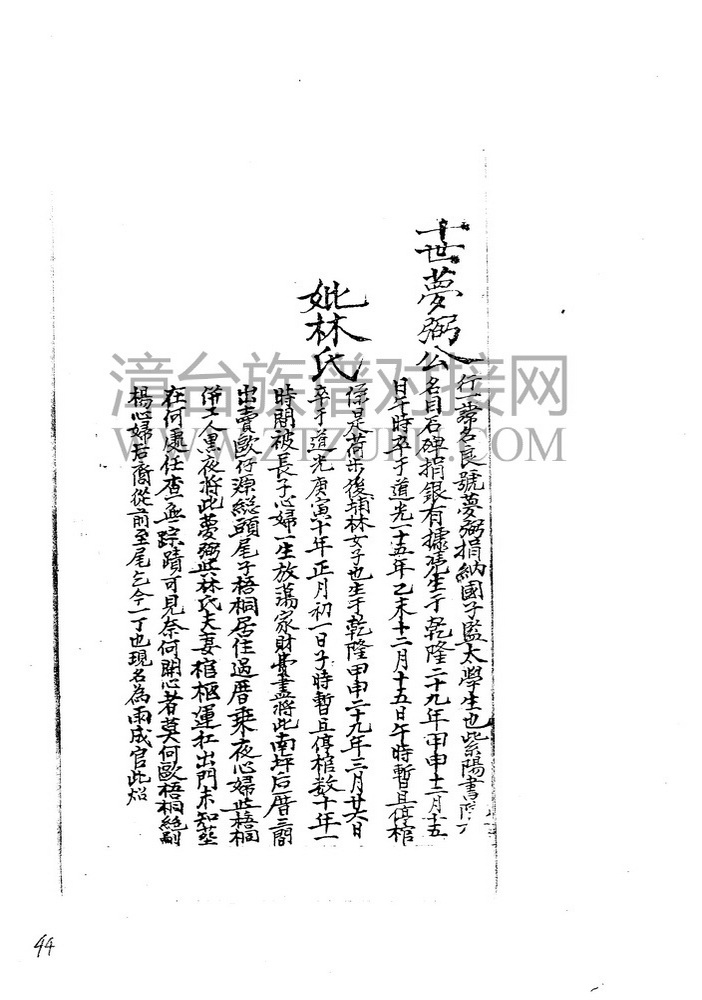 十世夢弼公
行一常名良號夢弼捐納國子監太學生也紫陽書院
名目石碑捐銀有據凴生于乾隆二十九年甲申十二月十五
日午時卒于道光一十五年乙未十二月十五日午時暫且停棺
妣林氏
係是荷步後埔林女子也生于乾隆甲申二十九年三月廿六日
卒于道光庚寅十年正月初一日子時暫且停棺数十年一
時間被長子心婦一生放蕩家財賣盡將此南坪后厝三間
出賣歐仔源総頭尾子梧桐居住過厝乘夜心婦與梧桐
併工人黑夜將此夢弼與林氏夫妻棺柩運扛出門未知塟
在何處任查無踪蹟可見奈何開心者莫何歐梧桐絕嗣
楊心婦后裔從前至尾乞今一丁也現名為雨成官此炤
44
漳台族谱对接网
WWW.ZTZUPU.COM